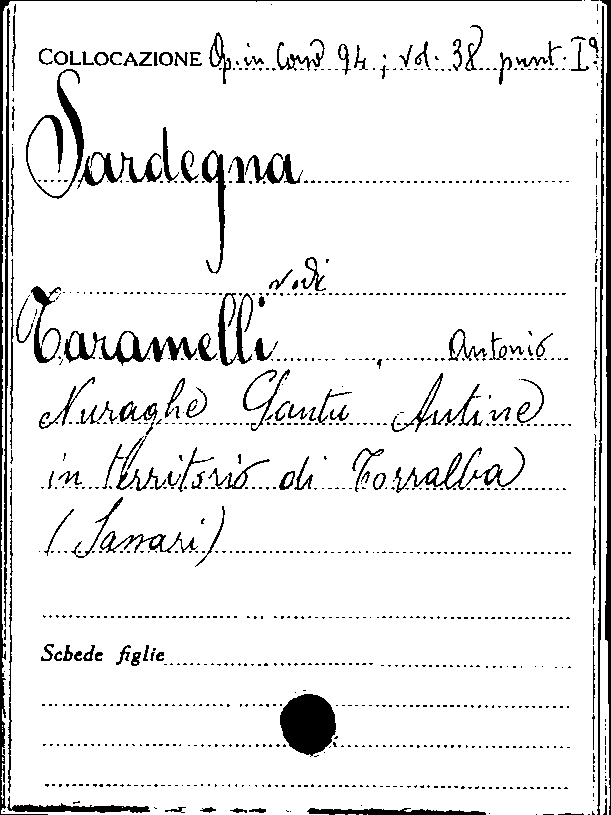 COLLOCAZIONE Op. in Corso 94; vol. 38 punt. Iª
Sardegna
vedi
Taramelli, Antonio
Nuraghe Santu Antine
in territorio di Torralba
(Sassari)
Schede figlie